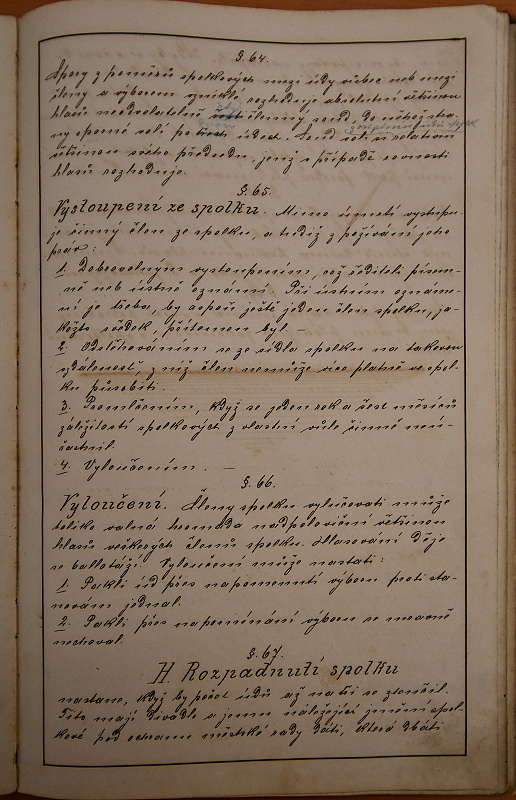 §. 64.
Spory z poměrů spolkových mezi údy vůbec neb mezi
členy a výborem vzniklé rozhoduje absolutní většinou
hlasů neodvolatelně členný soud, do něhož stra-
ny sporné volí po údech. Soud volí si relativní
většinou svého předsedu, jenž v případě rovnosti
hlasů rozhoduje.
§. 65.
Vystoupení ze spolku. Mimo úmrtí vystupu-
je činný člen ze spolku, a tudíž z požívání jeho
práv:
1. Dobrovolným vystoupením, což řediteli písem-
ně neb ústně oznámí. Při ústním oznáme-
ní je třeba, by aspoň ještě jeden člen spolku, ja-
kožto svědek, přítomen byl. —
2. Odstěhováním se ze sídla spolku na takovou
vzdálenost, z níž člen nemůže více platně ve spol-
ku působiti.
3. Promlčením, když se jeden rok a šest měsíců
záležitostí spolkových z vlastní vůle činně neú-
častnil.
4. Vyloučením. —
§. 66.
Vyloučení. Členy spolku vylučovati může
toliko valná hromada nadpoloviční většinou
hlasů veškerých členů spolku. Hlasování děje
se ballotáží. Vyloučení může nastati:
1. Pakli úd přes napomenutí výboru proti sta-
novám jednal.
2. Pakli přes napomínání výboru se mravně
nechoval.
§. 67.
H. Rozpadnutí spolku
nastane, když by počet údů až na tři se ztenčil.
Tito mají divadlo a jemu náležející jmění spol-
kové pod ochranu městské rady dáti, která dbáti